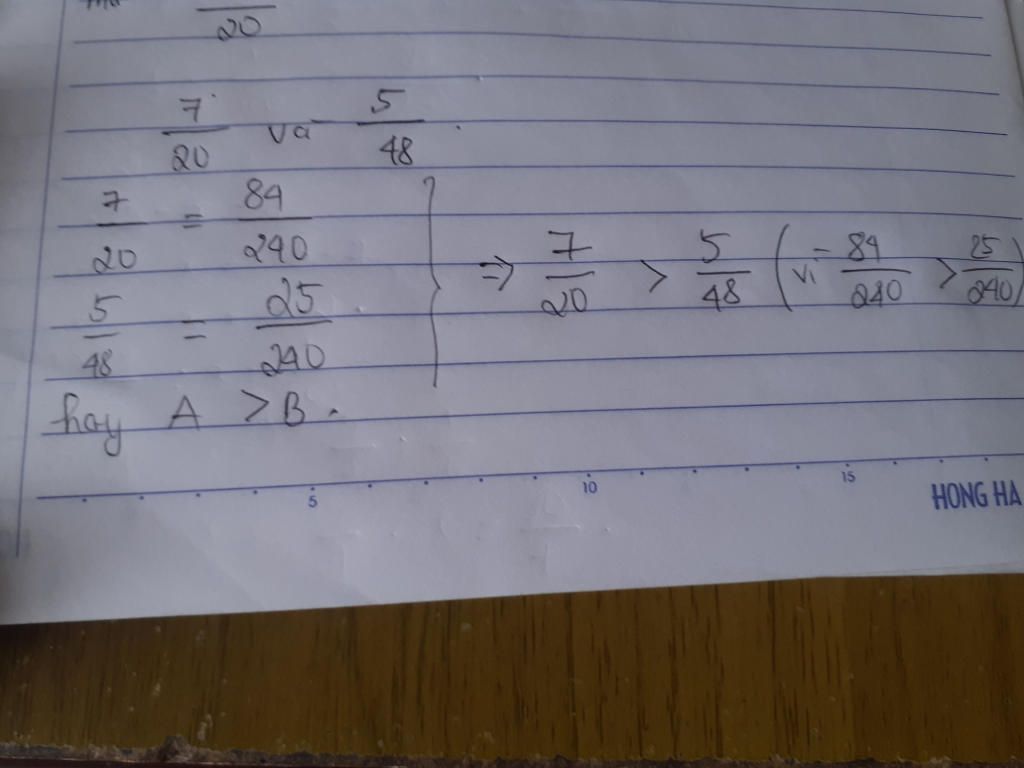 20
7/20 và 5/48.
7/20 = 84/240
5/48 = 25/240
} => 7/20 > 5/48 (vì 84/240 > 25/240)
hay A > B.
5 10 15
HONG HA